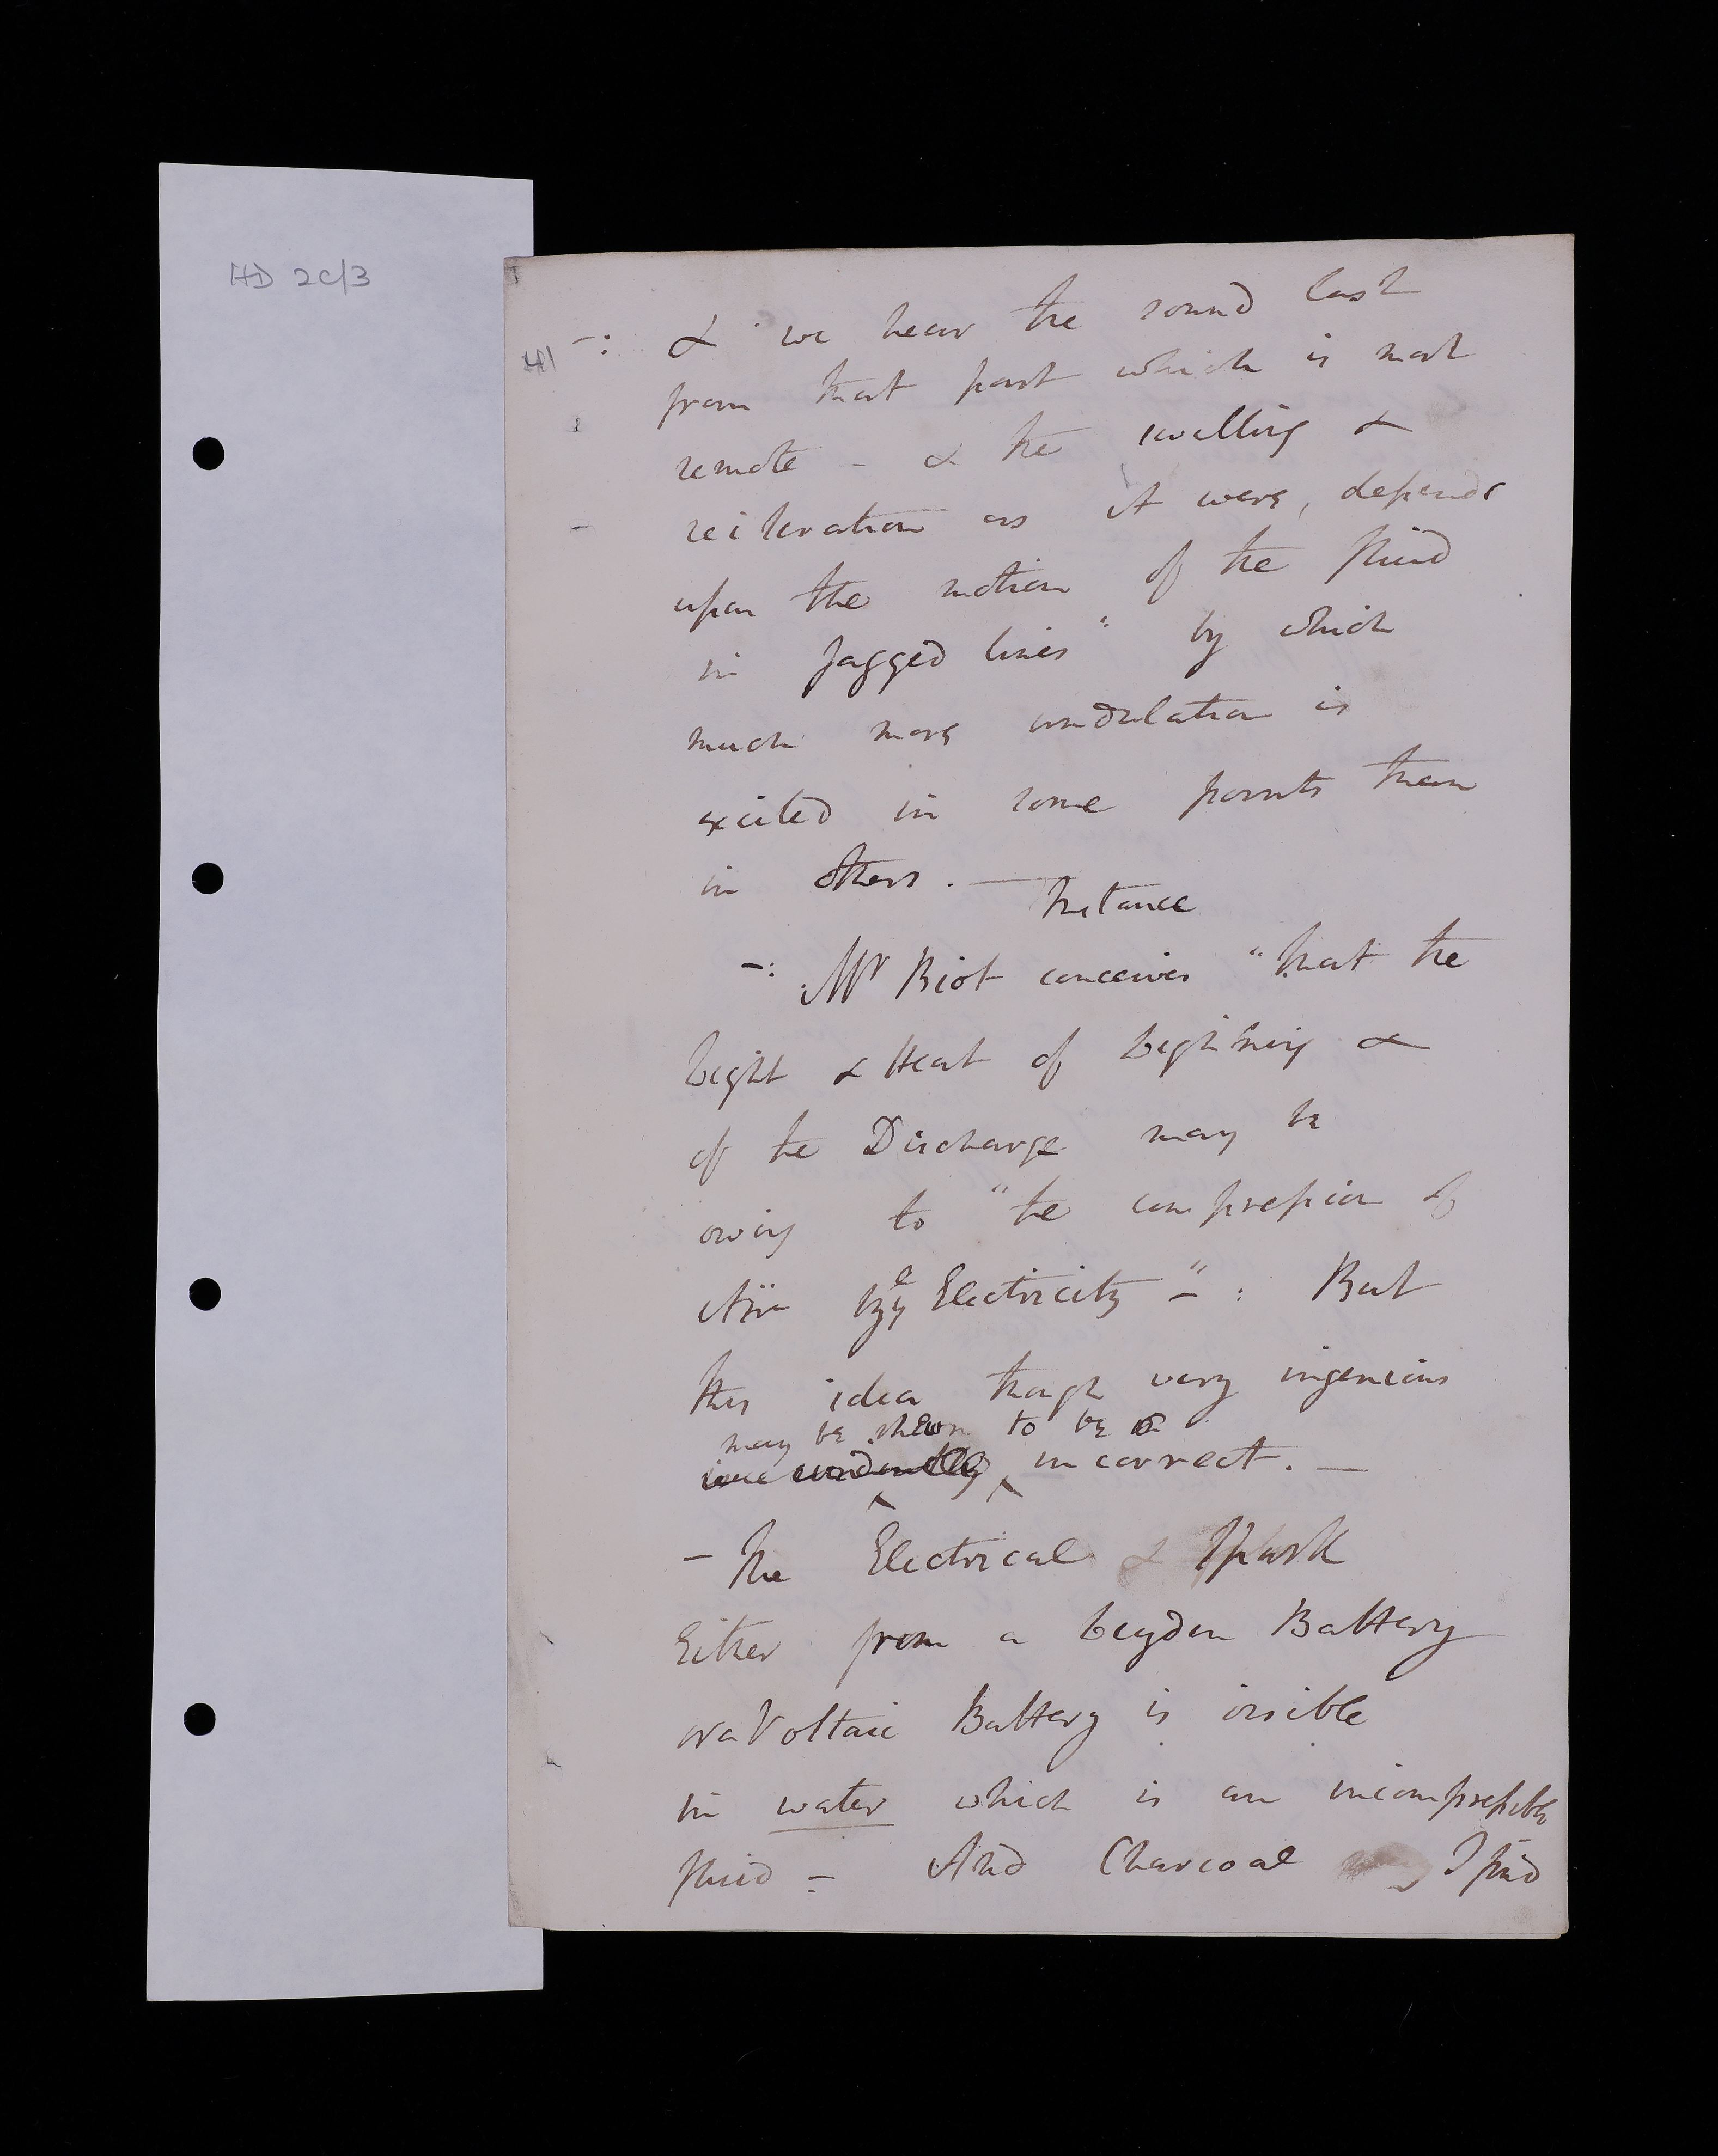 HD 2c/3
41
-: & we hear the sound last
from that part which is most
remote - & the swelling &
reiteration as it were, depends
upon the motion of the fluid
in jagged lines" by which
much more undulation is
excited in some points than
in others. —
Instance
-: Mr Biot conceives "that the
Light & Heat of Lightning &
of the Discharge may be
owing to "the compression of
Air by ye Electricity" - : But
this idea though very ingenious
may be shewn to be
evidently incorrect. —
- The Electrical & Spark
Either from a Leyden Battery
or a Voltaic Battery is visible
in water which is an incompressible
fluid = And Charcoal I find